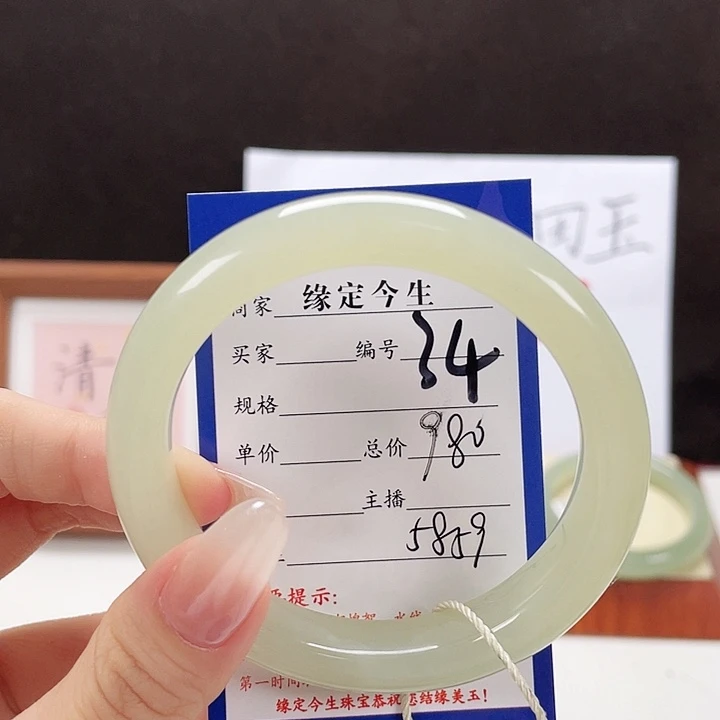 玉
清
商家 缘定今生
买家 编号 34
规格
单价 总价 980
主播
5859
提示:
第一时间
缘定今生珠宝恭祝您结缘美玉!